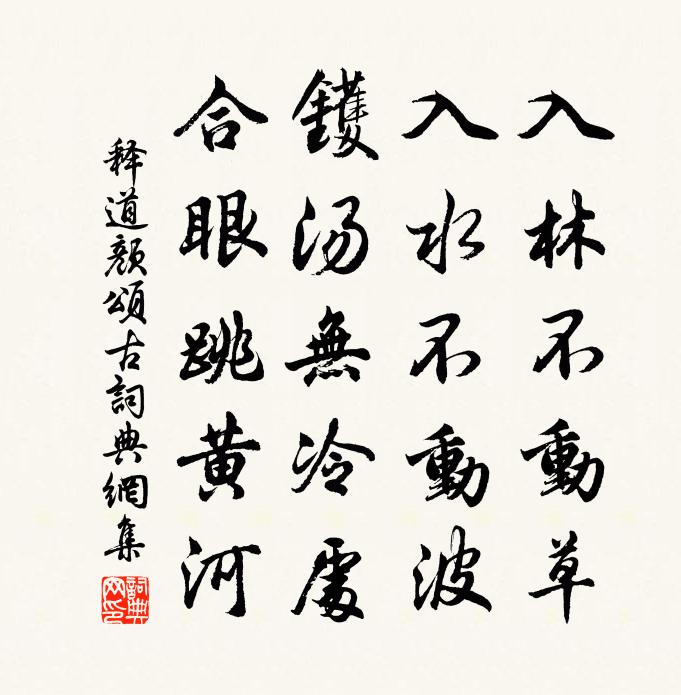 入林不動草
入水不動波
鑊湯無冷處
合眼跳黄河
释道顏頌古詞典網集
詞典网印